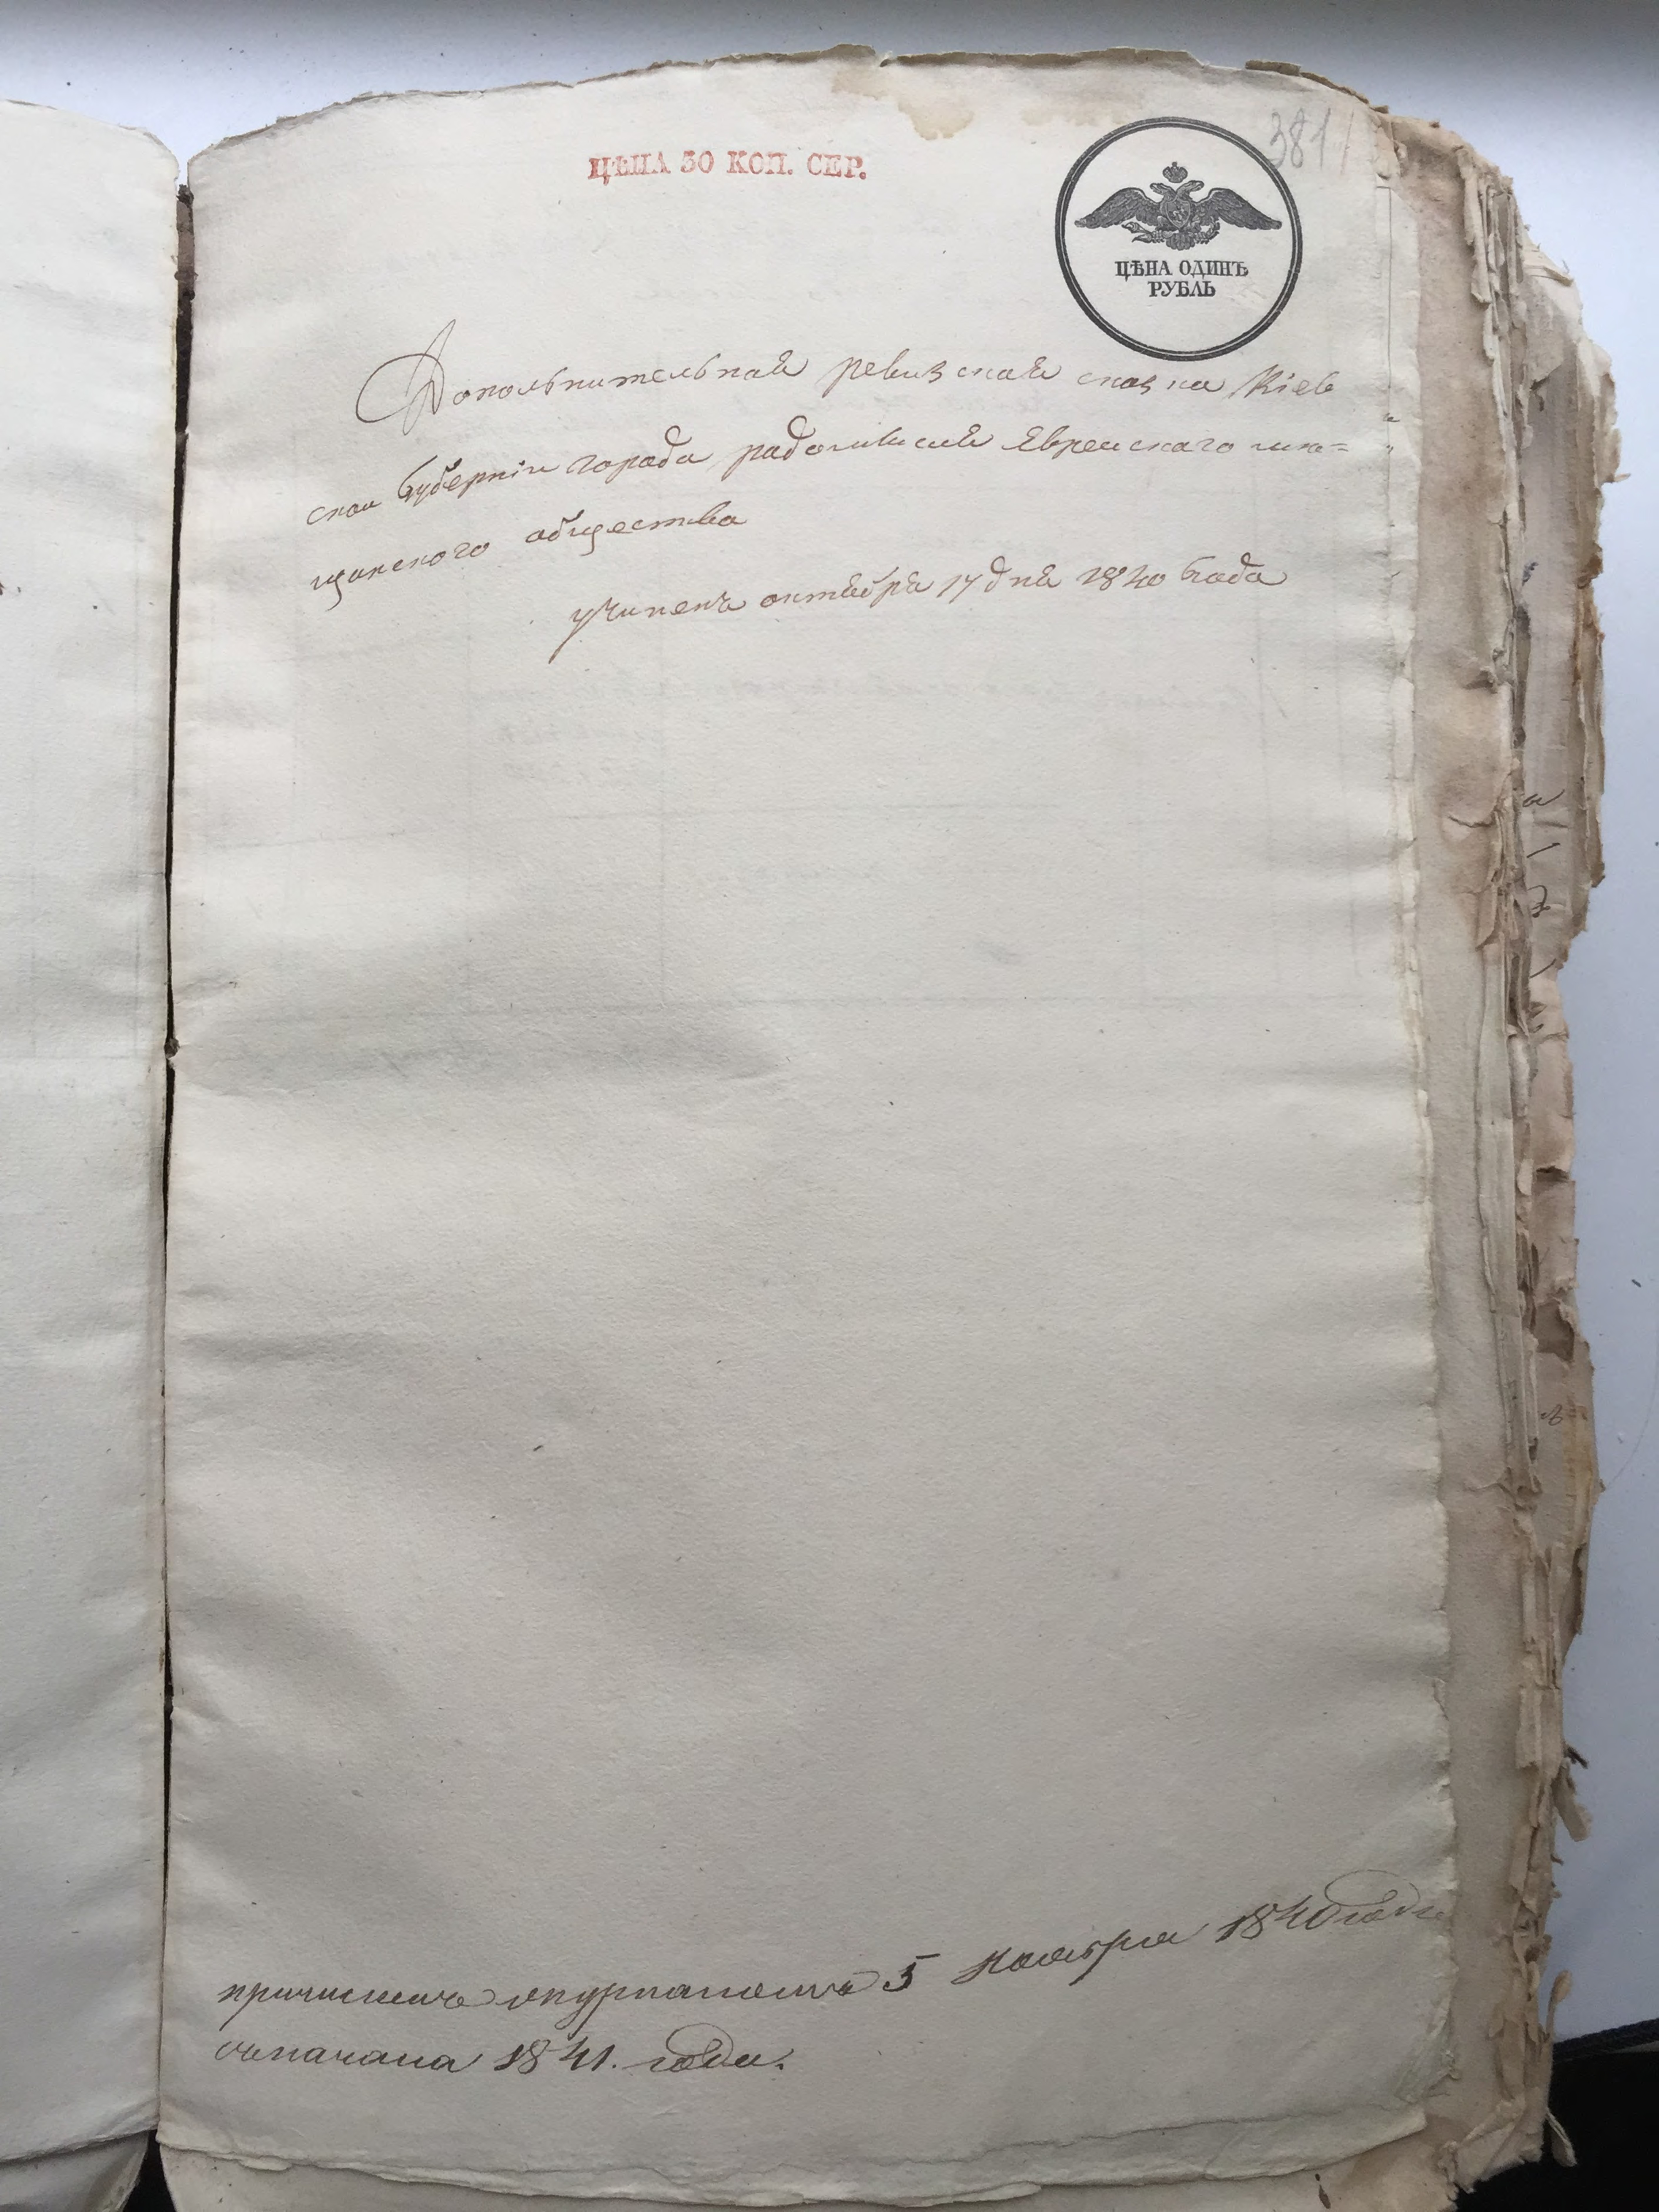 381
ЦѢНА 30 КОП. СЕР.
ЦѢНА ОДИНЪ
РУБЛЬ
Дополънителъная ревизская сказка Кіев
скои Губерніи города радомисля Евреискаго мѣ=
щанского общества
учинена октября 17 дня 1840 Года
причислить окупна 5 Ноября 1840 года
сначала 1841. года.